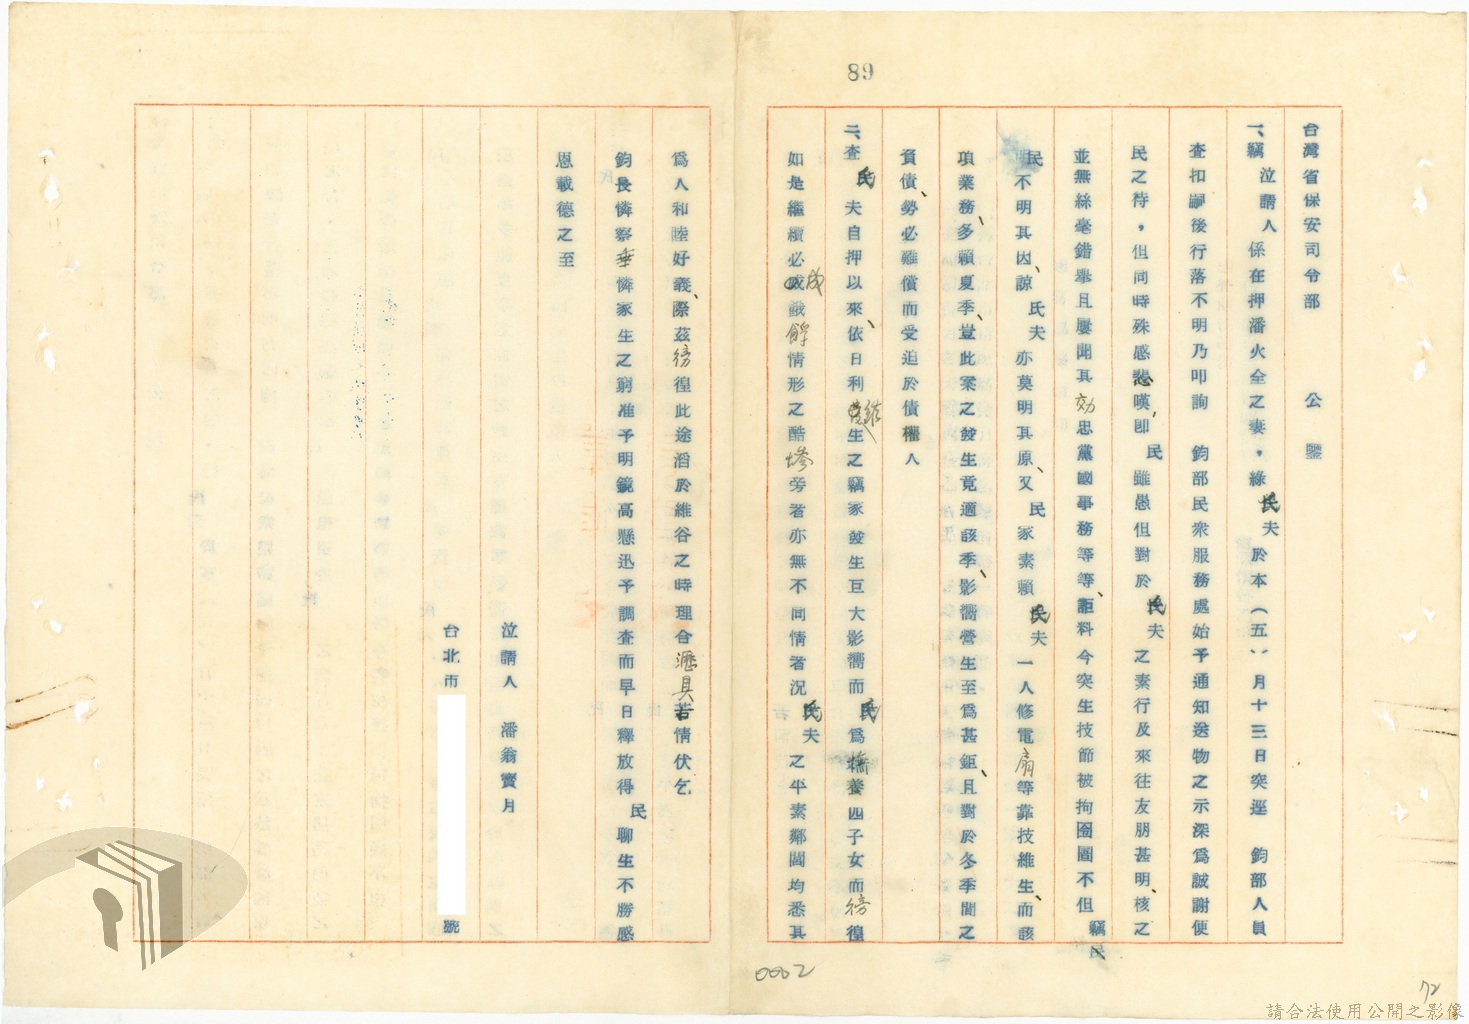 89
台灣省保安司令部　　公　鑒
一、竊　泣請人　係在押潘火全之妻，綠　民夫　於本（五）月十三日突逕　鈞部人員
查扣嗣後行落不明乃叩詢　鈞部民衆服務處始予通知送物之示深為誠謝便
民之待，但同時殊感悲嘆、卽　民　雖愚但對於　民夫　之素行及來往友朋甚明、核之
並無絲毫錯舉且屢聞其効忠黨國事務等等、詎料今突生技節被拘囹圄不但　竊民
民不明其因、諒　民夫　亦莫明其原、又　民　家素賴　民夫　一人修電扇等靠技維生、而該
項業務、多賴夏季、豈此案之發生竟適該季、影嚮營生至為甚鉅、且對於冬季間之
負債、勢必難償而受迫於債權人
二、查　民　夫自押以來、依日利　維生之竊家　發生巨大影嚮而　民　為　養四子女而徬徨
如是繼續必成餓餓情形之酷慘旁者亦無不同情者況　民夫　之平素鄰閭均悉其
為人和睦好義、際茲徬徨此途滔於維谷之時理合瀝具苦情伏乞
鈞長憐察垂憐家生之窮准予明鏡高懸迅予調查而早日釋放得　民　聊生不勝感
恩載德之至
泣請人　潘翁寶月
台北市　　號
0002
72
請合法使用公開之影像